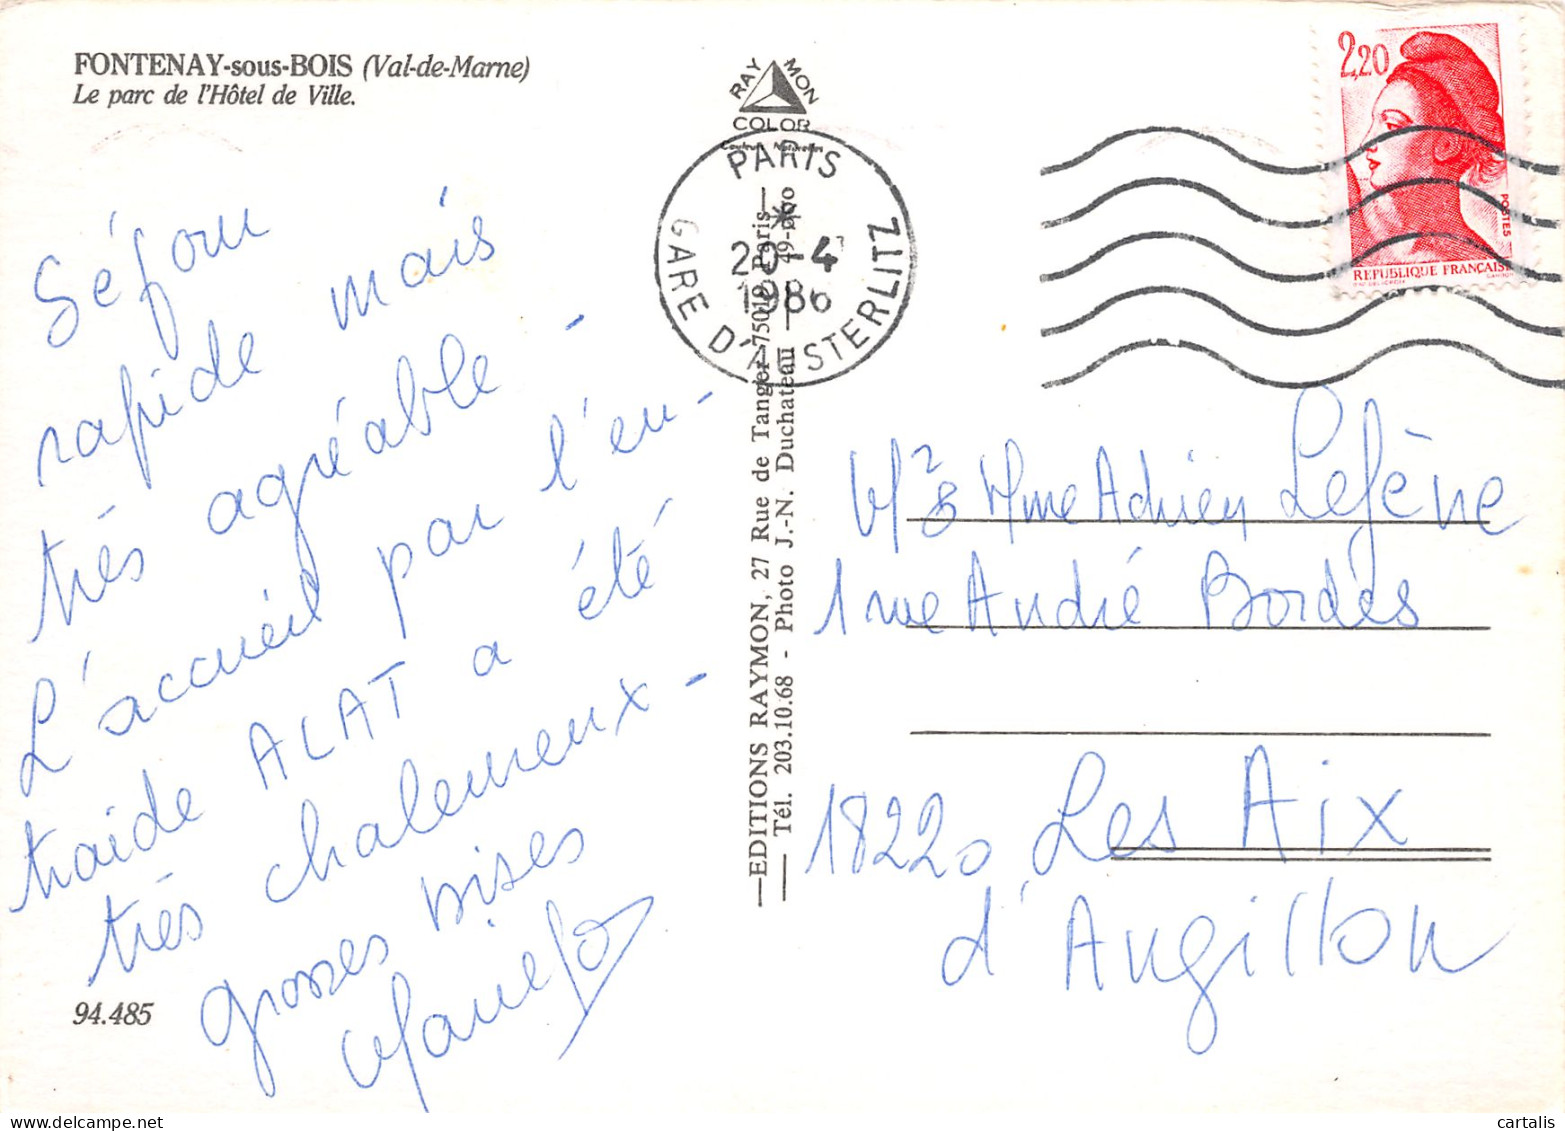 FONTENAY-sous-BOIS (Val-de-Marne)
Le parc de l'Hôtel de Ville.
RAYMON
COLOR
Couleurs Naturelles
PARIS
20-4
1986
GARE D'AUSTERLITZ
2,20
POSTES
REPUBLIQUE FRANÇAISE
Séjour
rapide mais
très agréable -
L'accueil par l'en-
traide ALAT a été
très chaleureux -
grosses bises
94.485
EDITIONS RAYMON, 27 Rue de Tanger 75019 Paris
Tél. 203.10.68 - Photo J.-N. Duchateau
Mr & Mme Adrien Lefène
1 rue André Bordes
18220 Les Aix
d'Angillon
cartalis